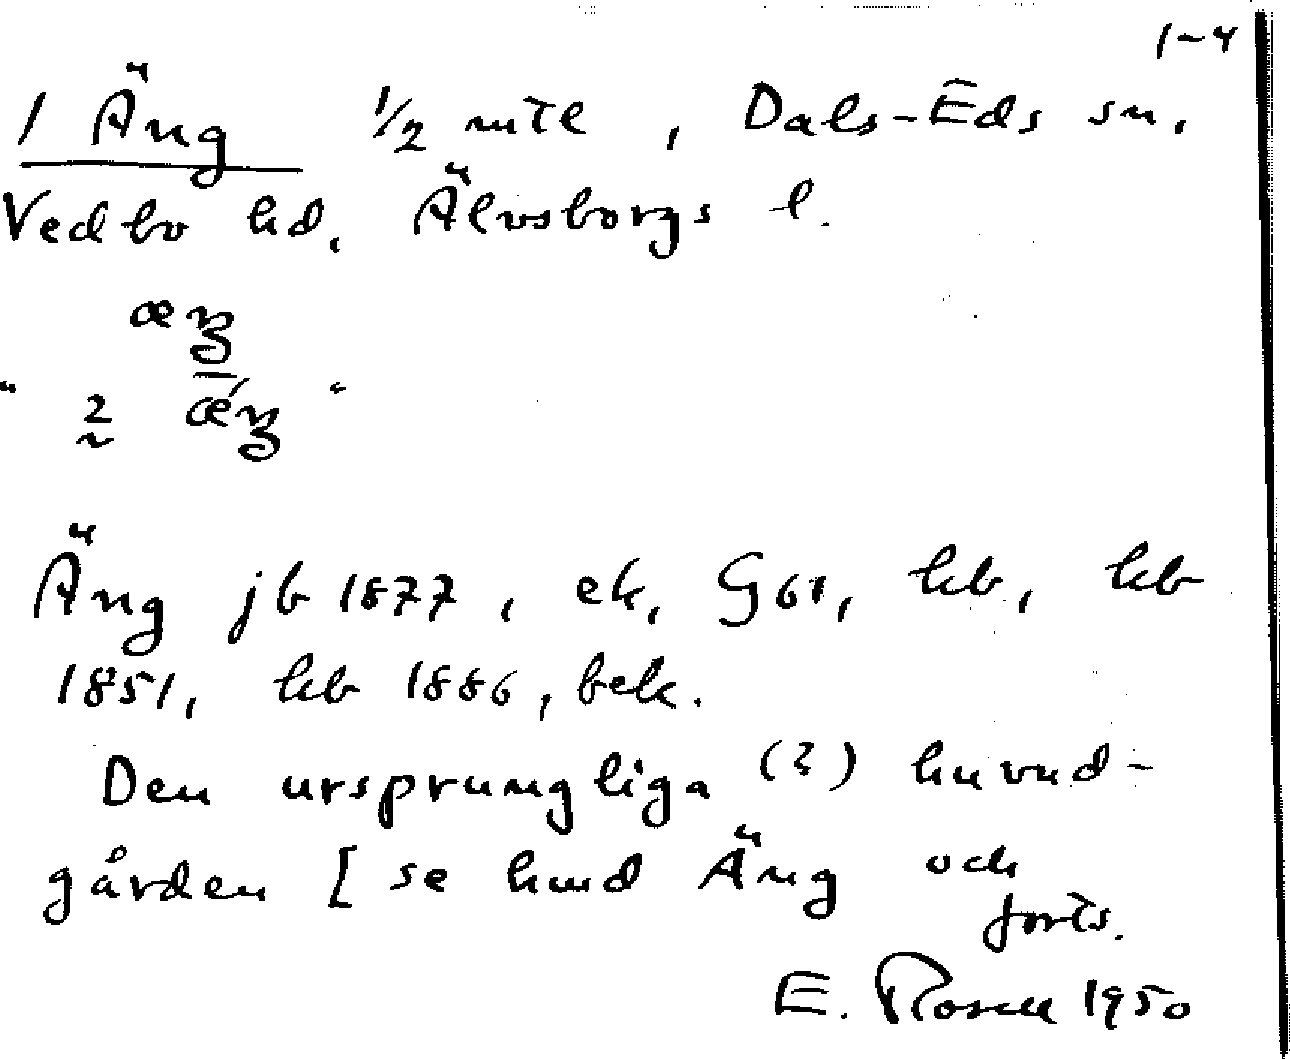 1-4
1 Äng ½ mtl, Dals-Eds sn.
Vedbo hd. Älvsborgs l.
æŋ
" 2 ǽŋ "
Äng jb 1877, ek, G61, hb, hb
1851, hb 1886, bek.
Den ursprungliga (?) huvud-
gården [se hmd Äng och
forts.
E. Rosell 1950